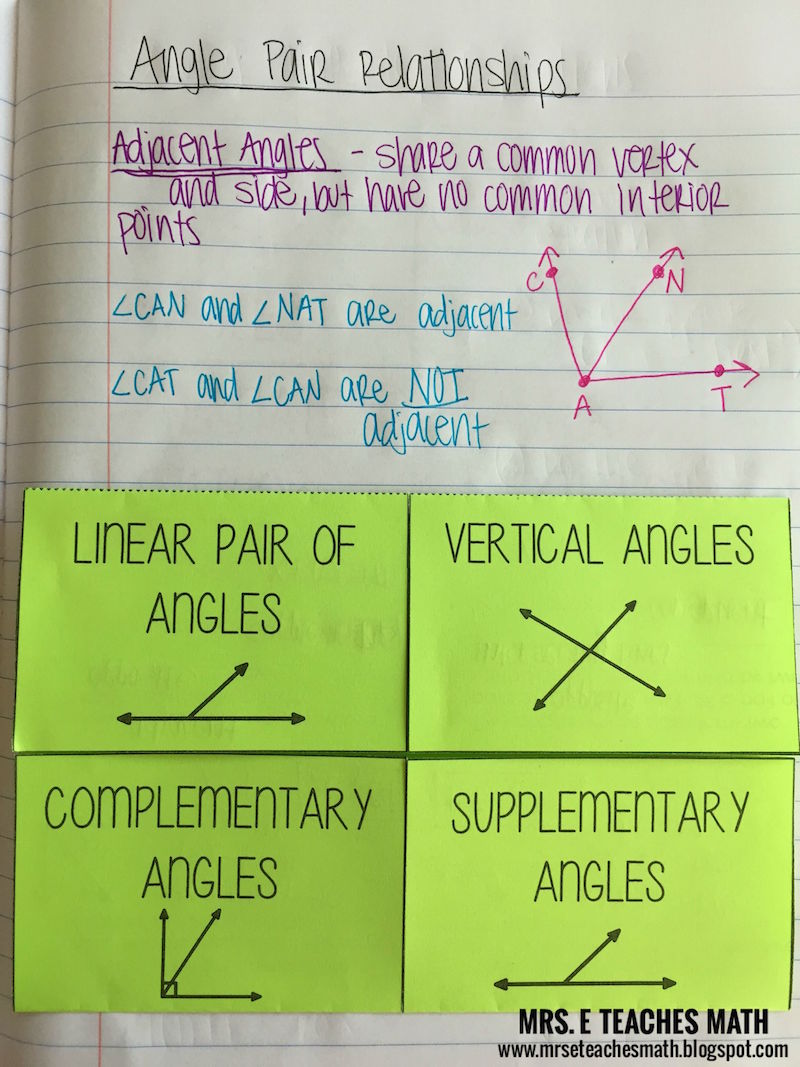 Angle Pair Relationships
Adjacent Angles - share a common vertex
and side, but have no common interior
points
∠CAN and ∠NAT are adjacent
∠CAT and ∠CAN are NOT
adjacent
C
N
A
T
LINEAR PAIR OF
ANGLES
VERTICAL ANGLES
COMPLEMENTARY
ANGLES
SUPPLEMENTARY
ANGLES
MRS. E TEACHES MATH
www.mrseteachesmath.blogspot.com